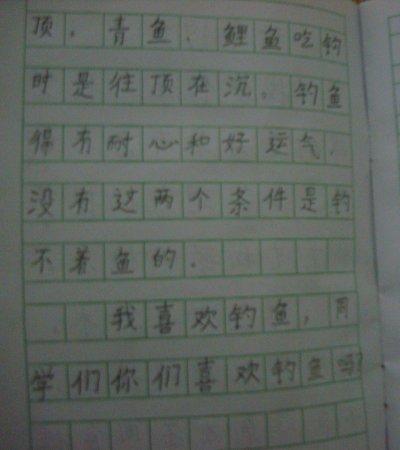 顶。青鱼、鲤鱼吃钓
时是往顶在沉。钓鱼
得有耐心和好运气.
没有这两个条件是钓
不着鱼的.
我喜欢钓鱼,同
学们你们喜欢钓鱼吗?